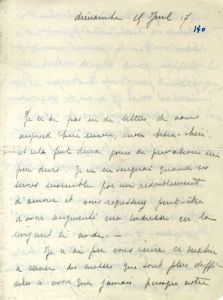 dimanche 15 Avril 17
140
Je n'ai pas eu de lettres de vous
aujourd'hui encore, mon bien-aimé
et cela fait deux jours de privations un
peu durs. Je m'en vengerai quand nous
serons ensemble par un redoublement
d'amour et vous regretterez peut-être
d'avoir augmenté ma tendresse en la
voyant si avide. —
Je n'ai pas vous écrire ce matin
à cause des messes qui sont plus diffi-
ciles à avoir que jamais puisque notre